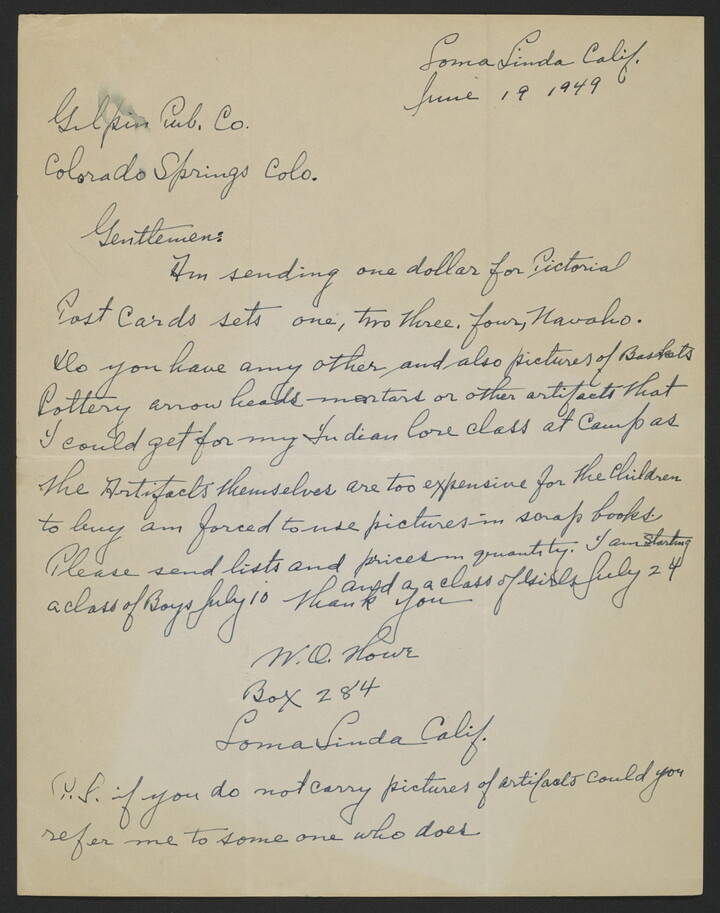 Loma Linda Calif.
June 19 1949
Gilpin Pub. Co.
Colorado Springs Colo.
Gentlemen:
Am sending one dollar for Pictorial
Post Cards sets one, two three, four, Navaho.
Do you have any other, and also pictures of Baskets
Pottery arrow heads mortars or other artifacts that
I could get for my Indian lore class at Camp as
the Artifacts themselves are too expensive for the Children
to buy am forced to use pictures in scrap books
Please send lists and prices in quantity. I am starting
a class of Boys July 10 and a a class of Girls July 24
Thank you
W.O. Howe
Box 284
Loma Linda Calif.
P.S. if you do not carry pictures of artifacts could you
refer me to some one who does